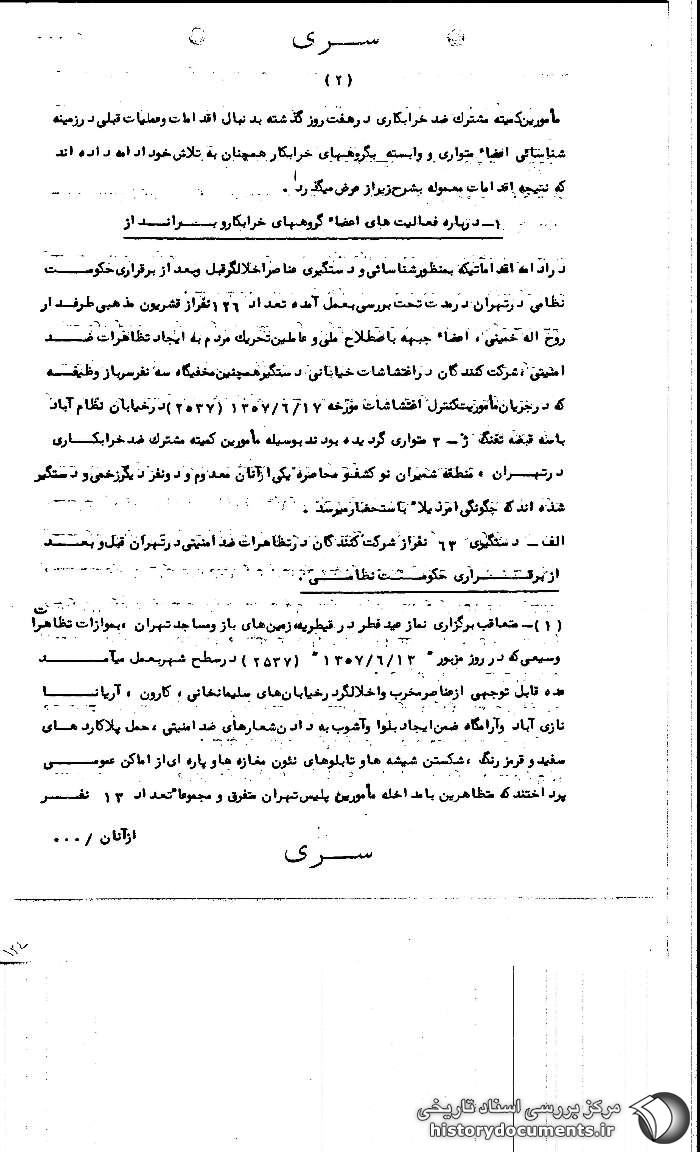 سری
(۲)
مأمورین کمیته مشترك ضد خرابکاری در هفت روز گذشته بدنبال اقدامات و عملیات قبلی در زمینه
شناسائی اعضاء متواری و وابسته بگروههای خرابکار همچنان به تلاش خود ادامه داده اند
که نتیجه اقدامات معموله بشرح زیر از عرض میگذرد .
۱- درباره فعالیت های اعضاء گروههای خرابکار و برانداز
در ادامه اقداماتیکه بمنظور شناسائی و دستگیری عناصر اخلالگر قبل و بعد از برقراری حکومت
نظامی در تهران در مدت تحت بررسی بعمل آمده تعداد ۱۲۶ نفر از قشریون مذهبی طرفدار
روح اله خمینی ، اعضاء جبهه باصطلاح ملی و عاملین تحریك مردم به ایجاد تظاهرات ضد
امنیتی ، شرکت کنندگان در اغتشاشات خیابانی دستگیر همچنین مخفیگاه سه نفر سرباز وظیفه
که در جریان مأموریت کنترل اغتشاشات مورخه ۱۳۵۷/۶/۱۷ (۲۵۳۷) در خیابان نظام آباد
با سه قبضه تفنگ ژ-۳ متواری گردیده بودند بوسیله مأمورین کمیته مشترك ضد خرابکاری
در تهران ، منطقه شمیران نو کشف و محاصره یکی از آنان معدوم و دو نفر دیگر زخمی و دستگیر
شده اند که چگونگی امر ذیلا" باستحضار میرسد .
الف - دستگیری ۶۳ نفر از شرکت کنندگان در تظاهرات ضد امنیتی در تهران قبل و بعد
از برقراری حکومت نظامی .
(۱) - متعاقب برگزاری نماز عید فطر در قیطریه، زمین های باز و مساجد تهران ، بموازات تظاهرات
وسیعی که در روز مزبور " ۱۳۵۷/۶/۱۳ " (۲۵۳۷) در سطح شهر بعمل میآمد
عده قابل توجهی از عناصر مخرب و اخلالگر در خیابان های سلیمانخانی ، کارون ، آریانا
نازی آباد و آرامگاه ضمن ایجاد بلوا و آشوب به دادن شعارهای ضد امنیتی ، حمل پلاکارد های
سفید و قرمز رنگ ، شکستن شیشه ها و تابلوهای نئون مغازه ها و پاره ای از اماکن عمومی
پرداختند که متظاهرین با مداخله مأمورین پلیس تهران متفرق و مجموعا" تعداد ۱۳ نفر
از آنان / ۰۰۰
سری
۱۲۴
مرکز بررسی اسناد تاریخی
historydocuments.ir